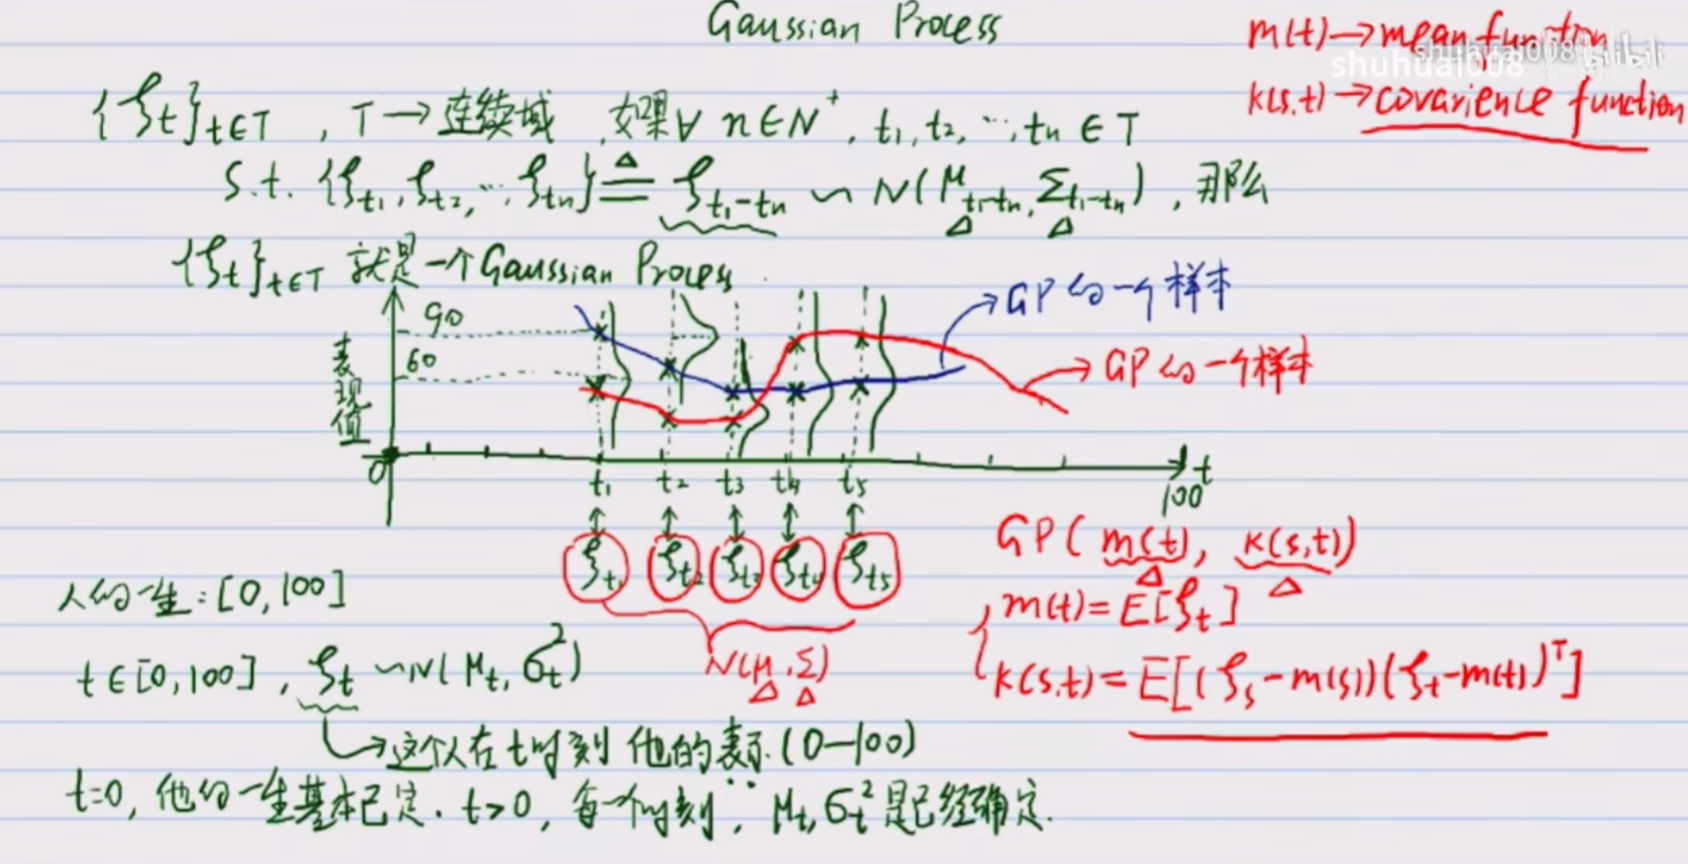 Gaussian Process
m(t)→mean function
k(s,t)→covarience function
shuhuai008
shuhuai008 bilibili
{ξt}t∈T , T→连续域 , 如果∀ n∈N⁺, t₁, t₂, ⋯, tn ∈T
s.t. {ξt₁, ξt₂, ⋯, ξtn} ≜ ξt₁-tn ~ N(μt₁-tn, Σt₁-tn) , 那么
{ξt}t∈T 就是一个Gaussian Process.
90
60
表现值
GP的一个样本
GP的一个样本
0
t
100
t₁ t₂ t₃ t₄ t₅
ξt₁ ξt₂ ξt₃ ξt₄ ξt₅
N(μ, Σ)
GP( m(t), k(s,t))
m(t)=E[ξt]
k(s,t)=E[(ξs-m(s))(ξt-m(t))ᵀ]
人的一生:[0,100]
t∈[0,100] , ξt ~N(μt, σt²)
→这个人在t时刻 他的表示.(0—100)
t=0, 他的一生基本已定. t>0, 每一个时刻, μt, σt²是已经确定.